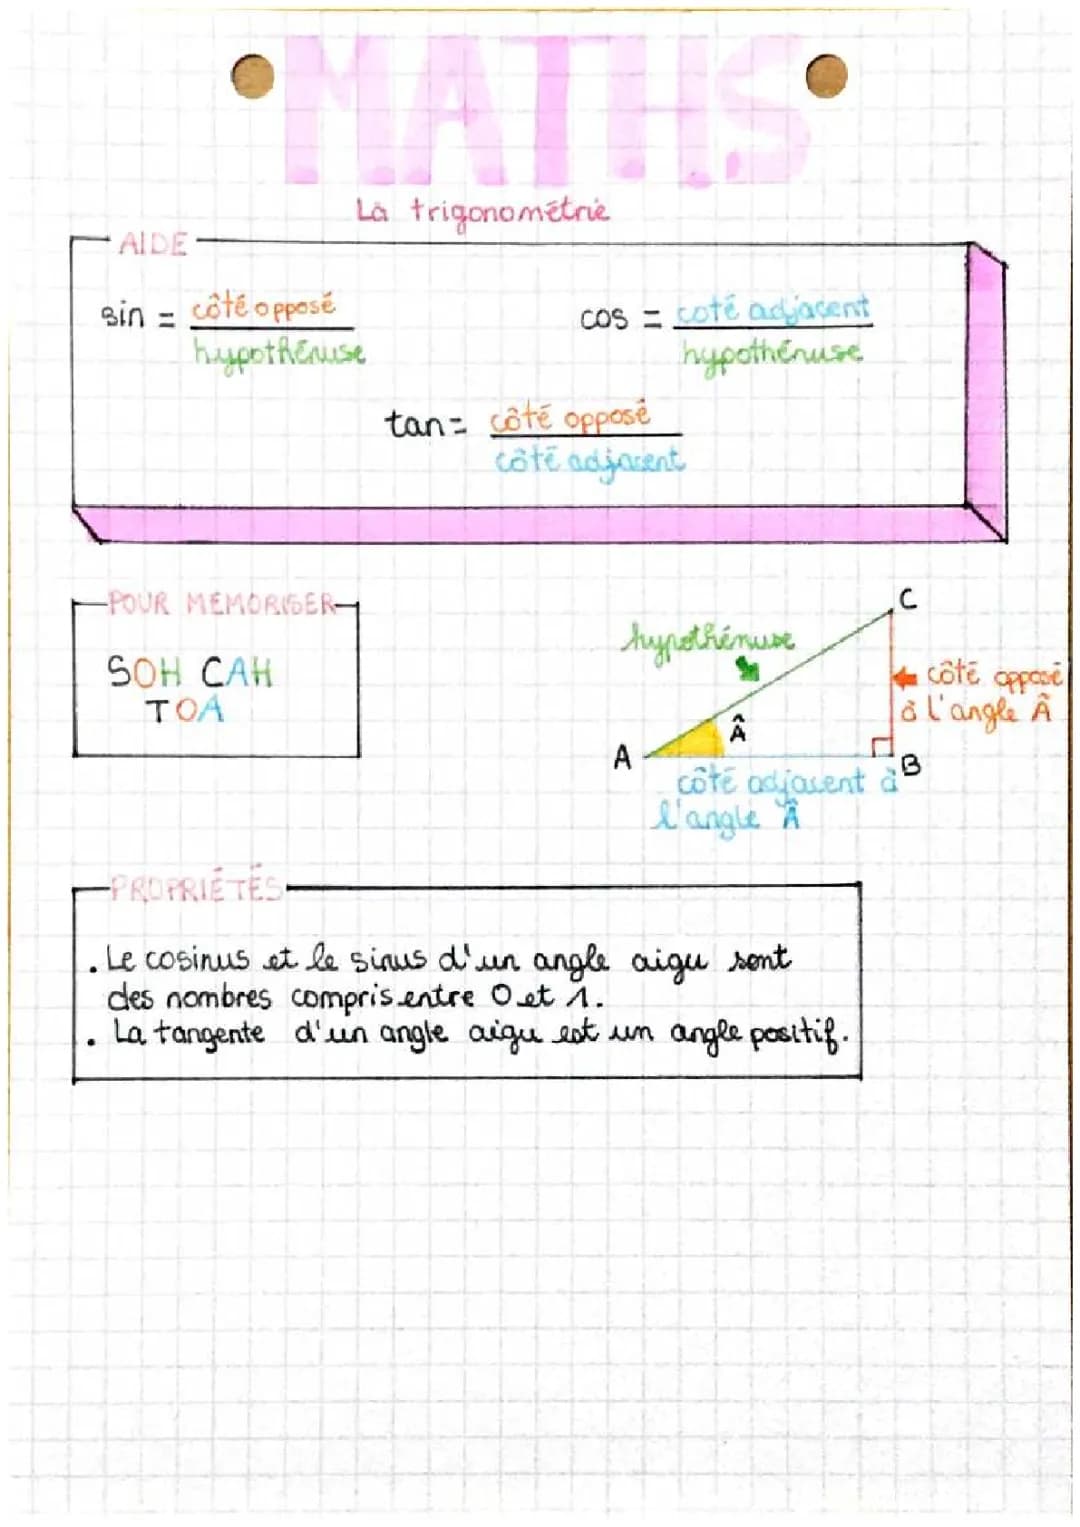 MATHS
La trigonométrie
AIDE
sin = côté opposé
hypothénuse
cos = coté adjacent
hypothénuse
tan= côté opposé
côté adjacent
POUR MEMORISER
SOH CAH
TOA
C
hypothénuse
côté opposé
à l'angle Â
Â
A
B
côté adjacent à
l'angle Â
PROPRIÉTÉS
. Le cosinus et le sinus d'un angle aigu sont
des nombres compris entre 0 et 1.
. La tangente d'un angle aigu est un angle positif.